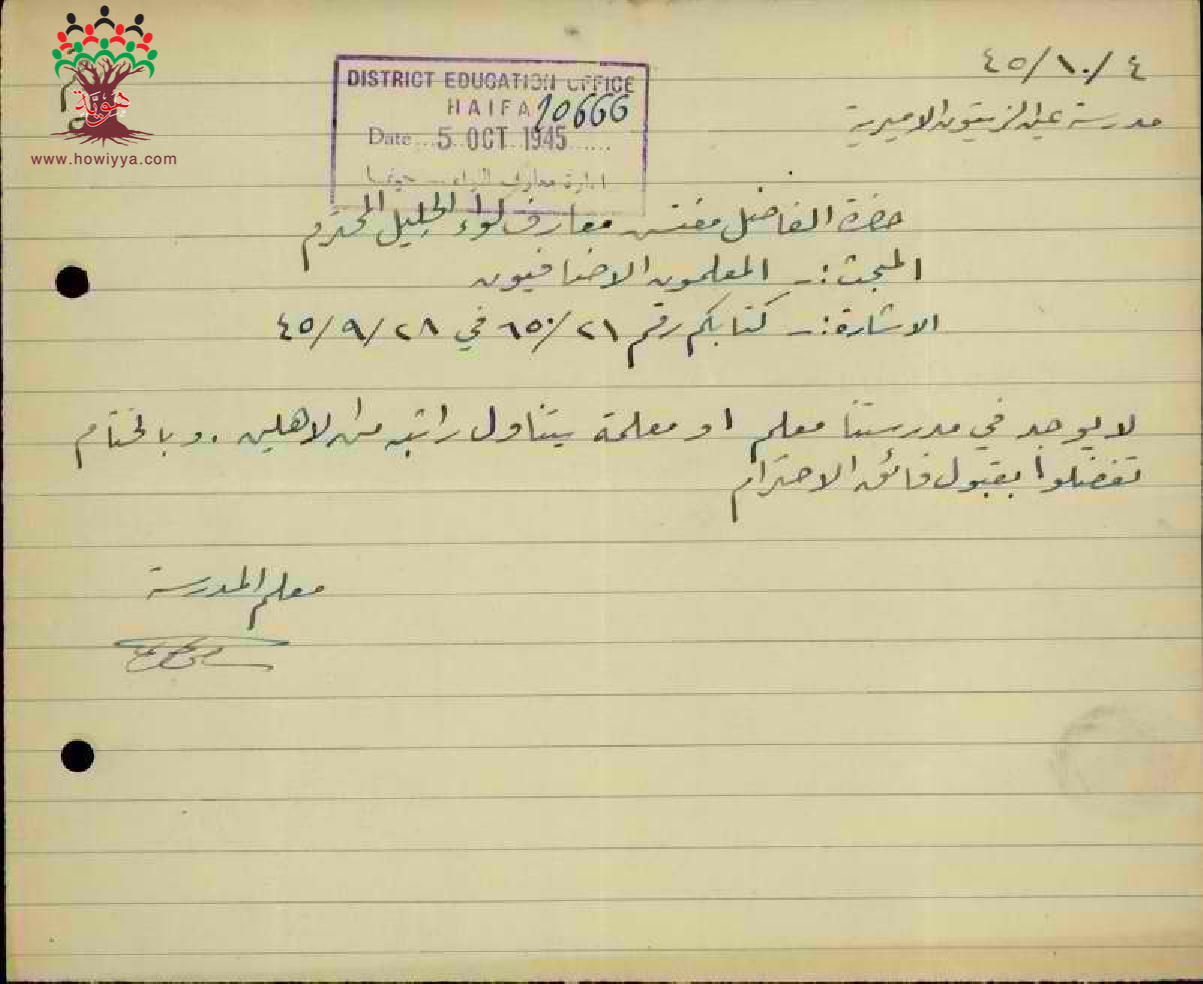 هوية
www.howiyya.com
DISTRICT EDUCATION OFFICE
HAIFA 10666
Date 5 OCT 1945
ادارة معارف اللواء - حيفا
٤/١٠/٤٥
مدرسة عين الزيتون الاميرية
حضرة الفاضل مفتش معارف لواء الجليل المحترم
المبحث :- المعلمون الاضافيون
الاشارة :- كتابكم رقم ٦٥٠/٢١ في ٢٨/٩/٤٥
لا يوجد في مدرستنا معلم او معلمة يتناول راتبه من الاهلين . وبالختام
تفضلوا بقبول فائق الاحترام
معلم المدرسة